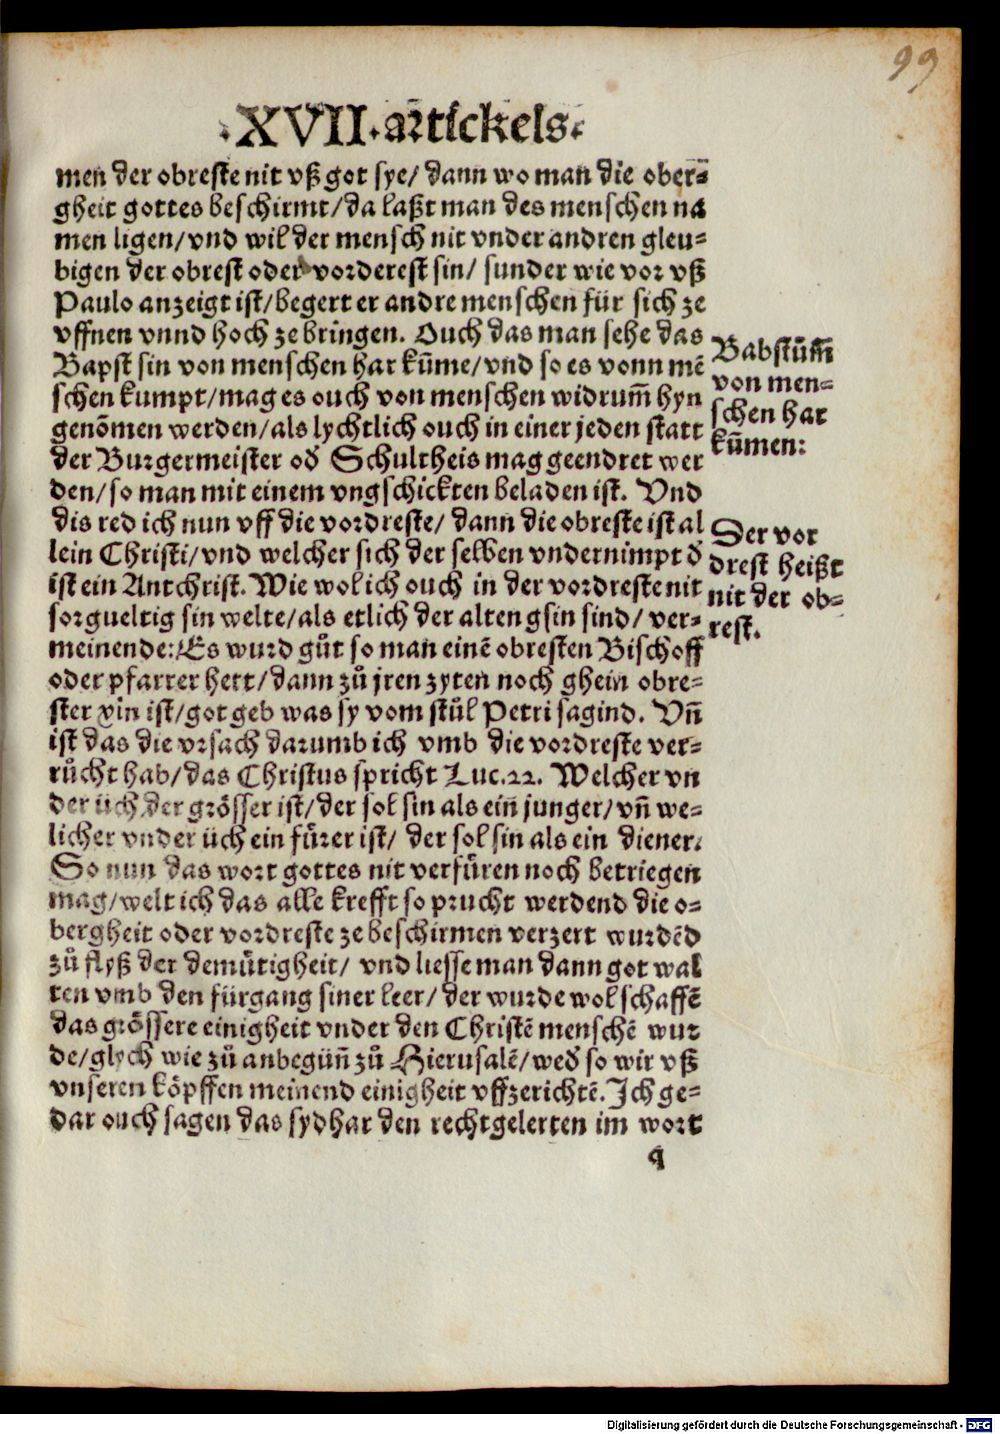 99
·XVII·artickels·
men der obreste nit vß got sye/ dann wo man die ober⸗
gheit gottes beschirmt/da laßt man des menschen na
men ligen/vnd wil der mensch nit vnder andren gleu⸗
bigen der obrest oder vorderest sin/ sunder wie vor vß
Paulo anzeigt ist/begert er andre menschen für sich ze
vffnen vnnd hoch ze bringen. Ouch das man sehe das
Bapst sin von menschen har kum̄e/vnd so es vonn mē
schen kumpt/mag es ouch von menschen widrum̄ hyn
genōmen werden/als lychtlich ouch in einer jeden statt
der Burgermeister od̄ Schultheis mag geendret wer
den/so man mit einem vngschickten beladen ist. Vnd
dis red ich nun vff die vordreste/ dann die obreste ist al
lein Christi/vnd welcher sich der selben vndernimpt d̄
ist ein Antchrist. Wie wol ich ouch in der vordreste nit
sorgueltig sin welte/als etlich der alten gsin sind/ ver⸗
meinende: Es wurd gůt so man einē obresten Bischoff
oder pfarrer hett/dann zů jren zyten noch ghein obre⸗
ster xin ist/got geb was sy vom stůl Petri sagind. Vn̄
ist das die vrsach darumb ich vmb die vordreste ver⸗
růcht hab/das Christus spricht Luc.22. Welcher vn
der üch der grösser ist/der sol sin als ein junger/vn̄ we⸗
licher vnder üch ein fürer ist/ der sol sin als ein diener.
So nun das wort gottes nit verfüren noch betriegen
mag/welt ich das alle krefft so prucht werdend die o⸗
bergheit oder vordreste ze beschirmen verzert wurdēd
zů flyß der demütigheit/ vnd liesse man dann got wal
ten vmb den fürgang siner leer/ der wurde wol schaffē
das grössere einigheit vnder den Christē menschē wur
de/glych wie zů anbegün̄ zů Hierusalē/wed̄ so wir vß
vnseren köpffen meinend einigheit vffzerichtē. Ich ge⸗
dar ouch sagen das sydhar den rechtgelerten im wort
q
Babstům̄
von men⸗
schen har
kum̄en:
Der vor
drest heißt
nit der ob⸗
rest.
Digitalisierung gefördert durch die Deutsche Forschungsgemeinschaft - DFG